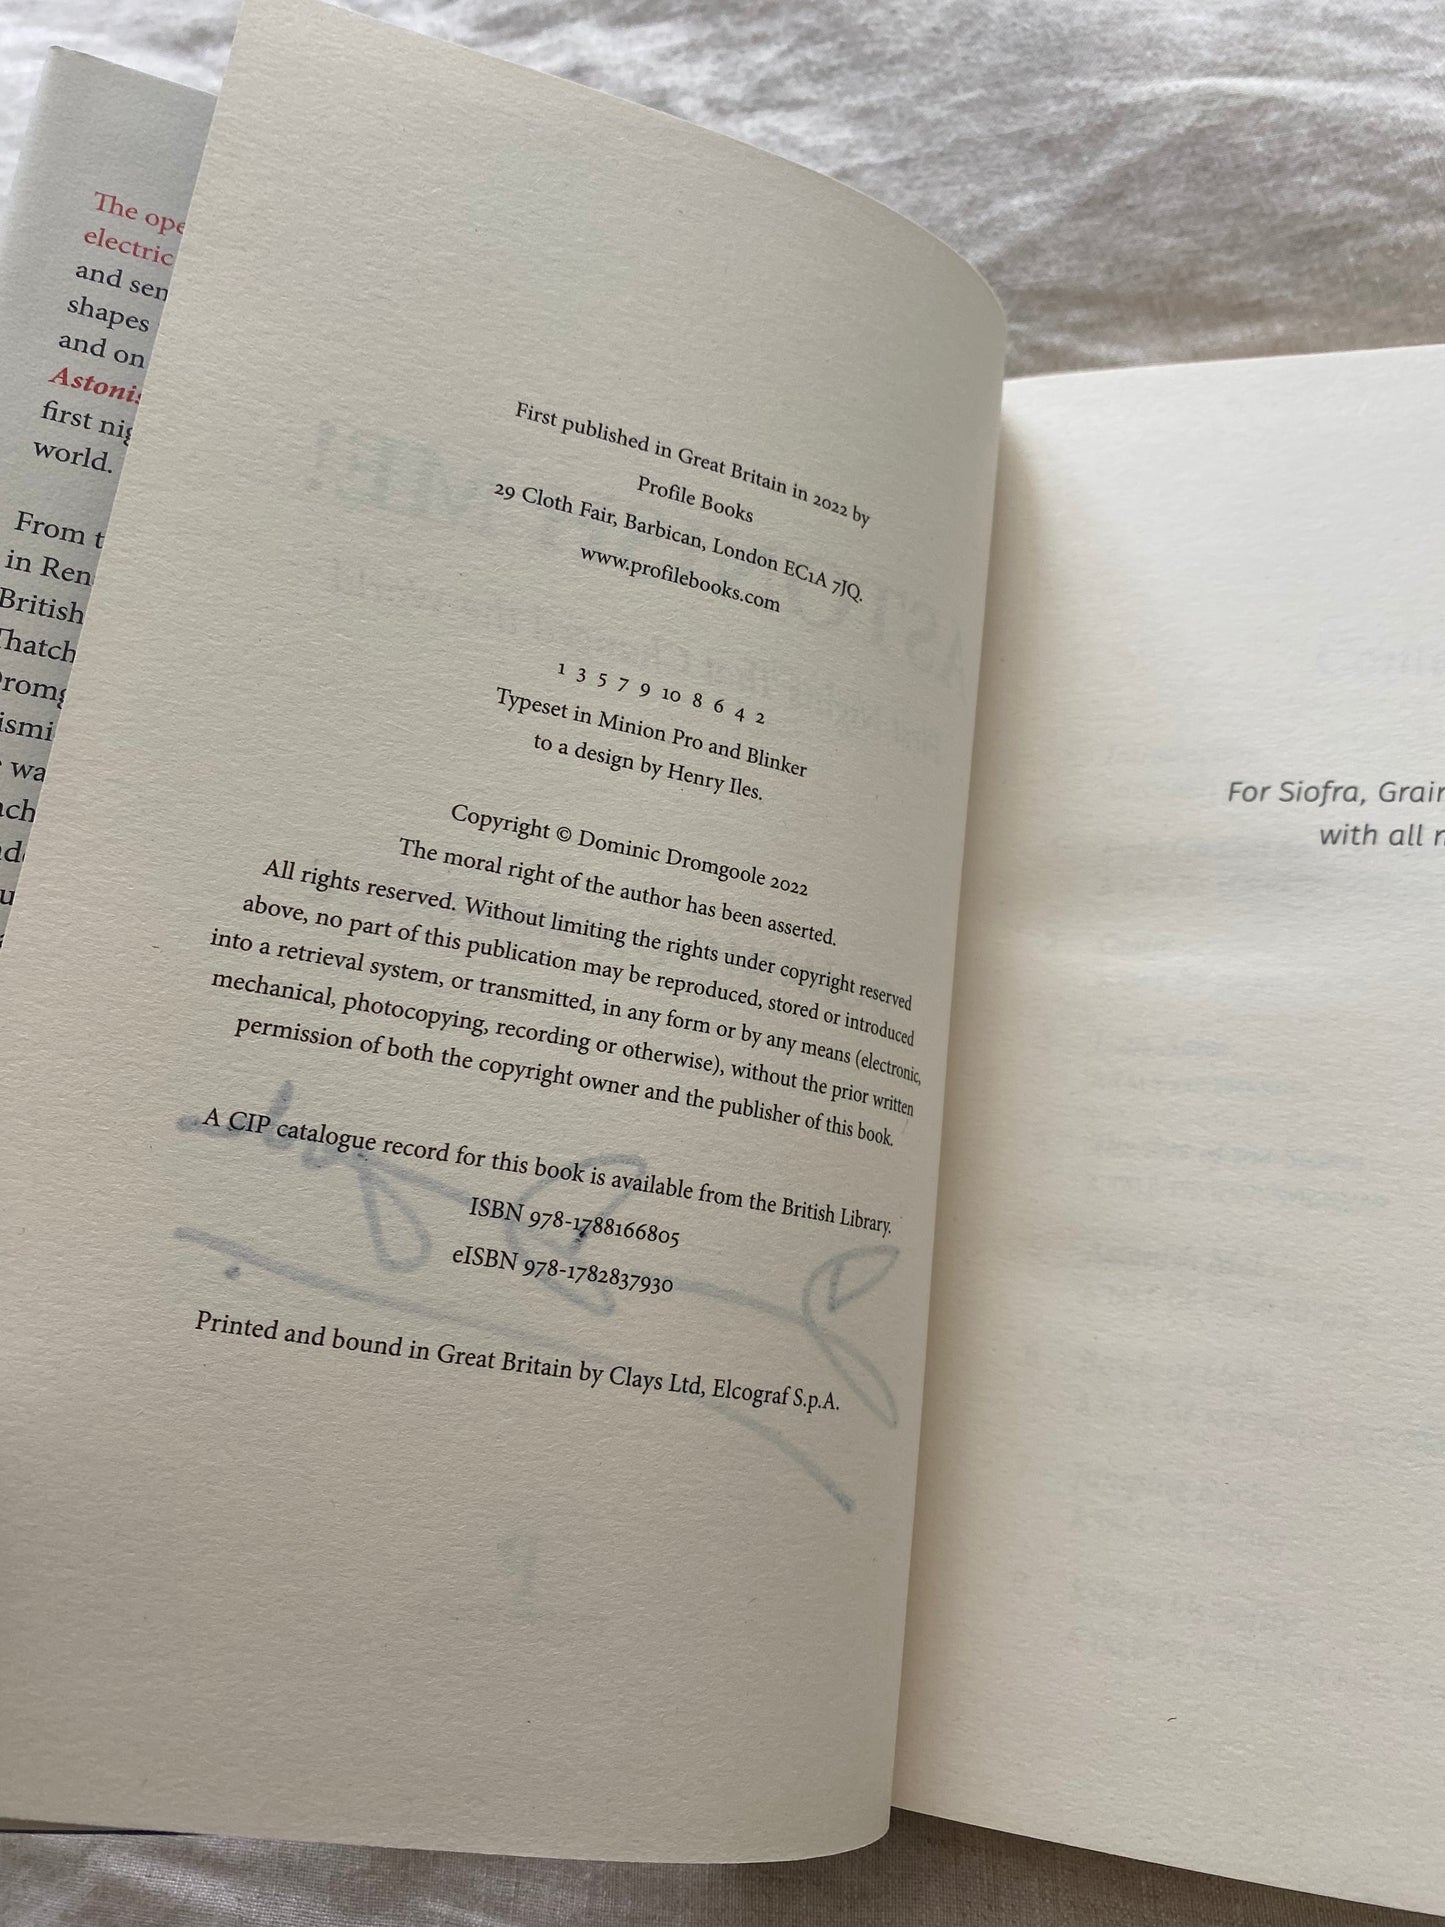 The ope
electric
and sen
shapes
and on
Astonis
first nig
world.
From t
in Ren
British
Thatch
Dromg
ismi
wa
ach
First published in Great Britain in 2022 by
Profile Books
29 Cloth Fair, Barbican, London EC1A 7JQ.
www.profilebooks.com
1 3 5 7 9 10 8 6 4 2
Typeset in Minion Pro and Blinker
to a design by Henry Iles.
Copyright © Dominic Dromgoole 2022
The moral right of the author has been asserted.
All rights reserved. Without limiting the rights under copyright reserved
above, no part of this publication may be reproduced, stored or introduced
into a retrieval system, or transmitted, in any form or by any means (electronic,
mechanical, photocopying, recording or otherwise), without the prior written
permission of both the copyright owner and the publisher of this book.
A CIP catalogue record for this book is available from the British Library.
ISBN 978-1788166805
eISBN 978-1782837930
Printed and bound in Great Britain by Clays Ltd, Elcograf S.p.A.
For Siofra, Grai
with all